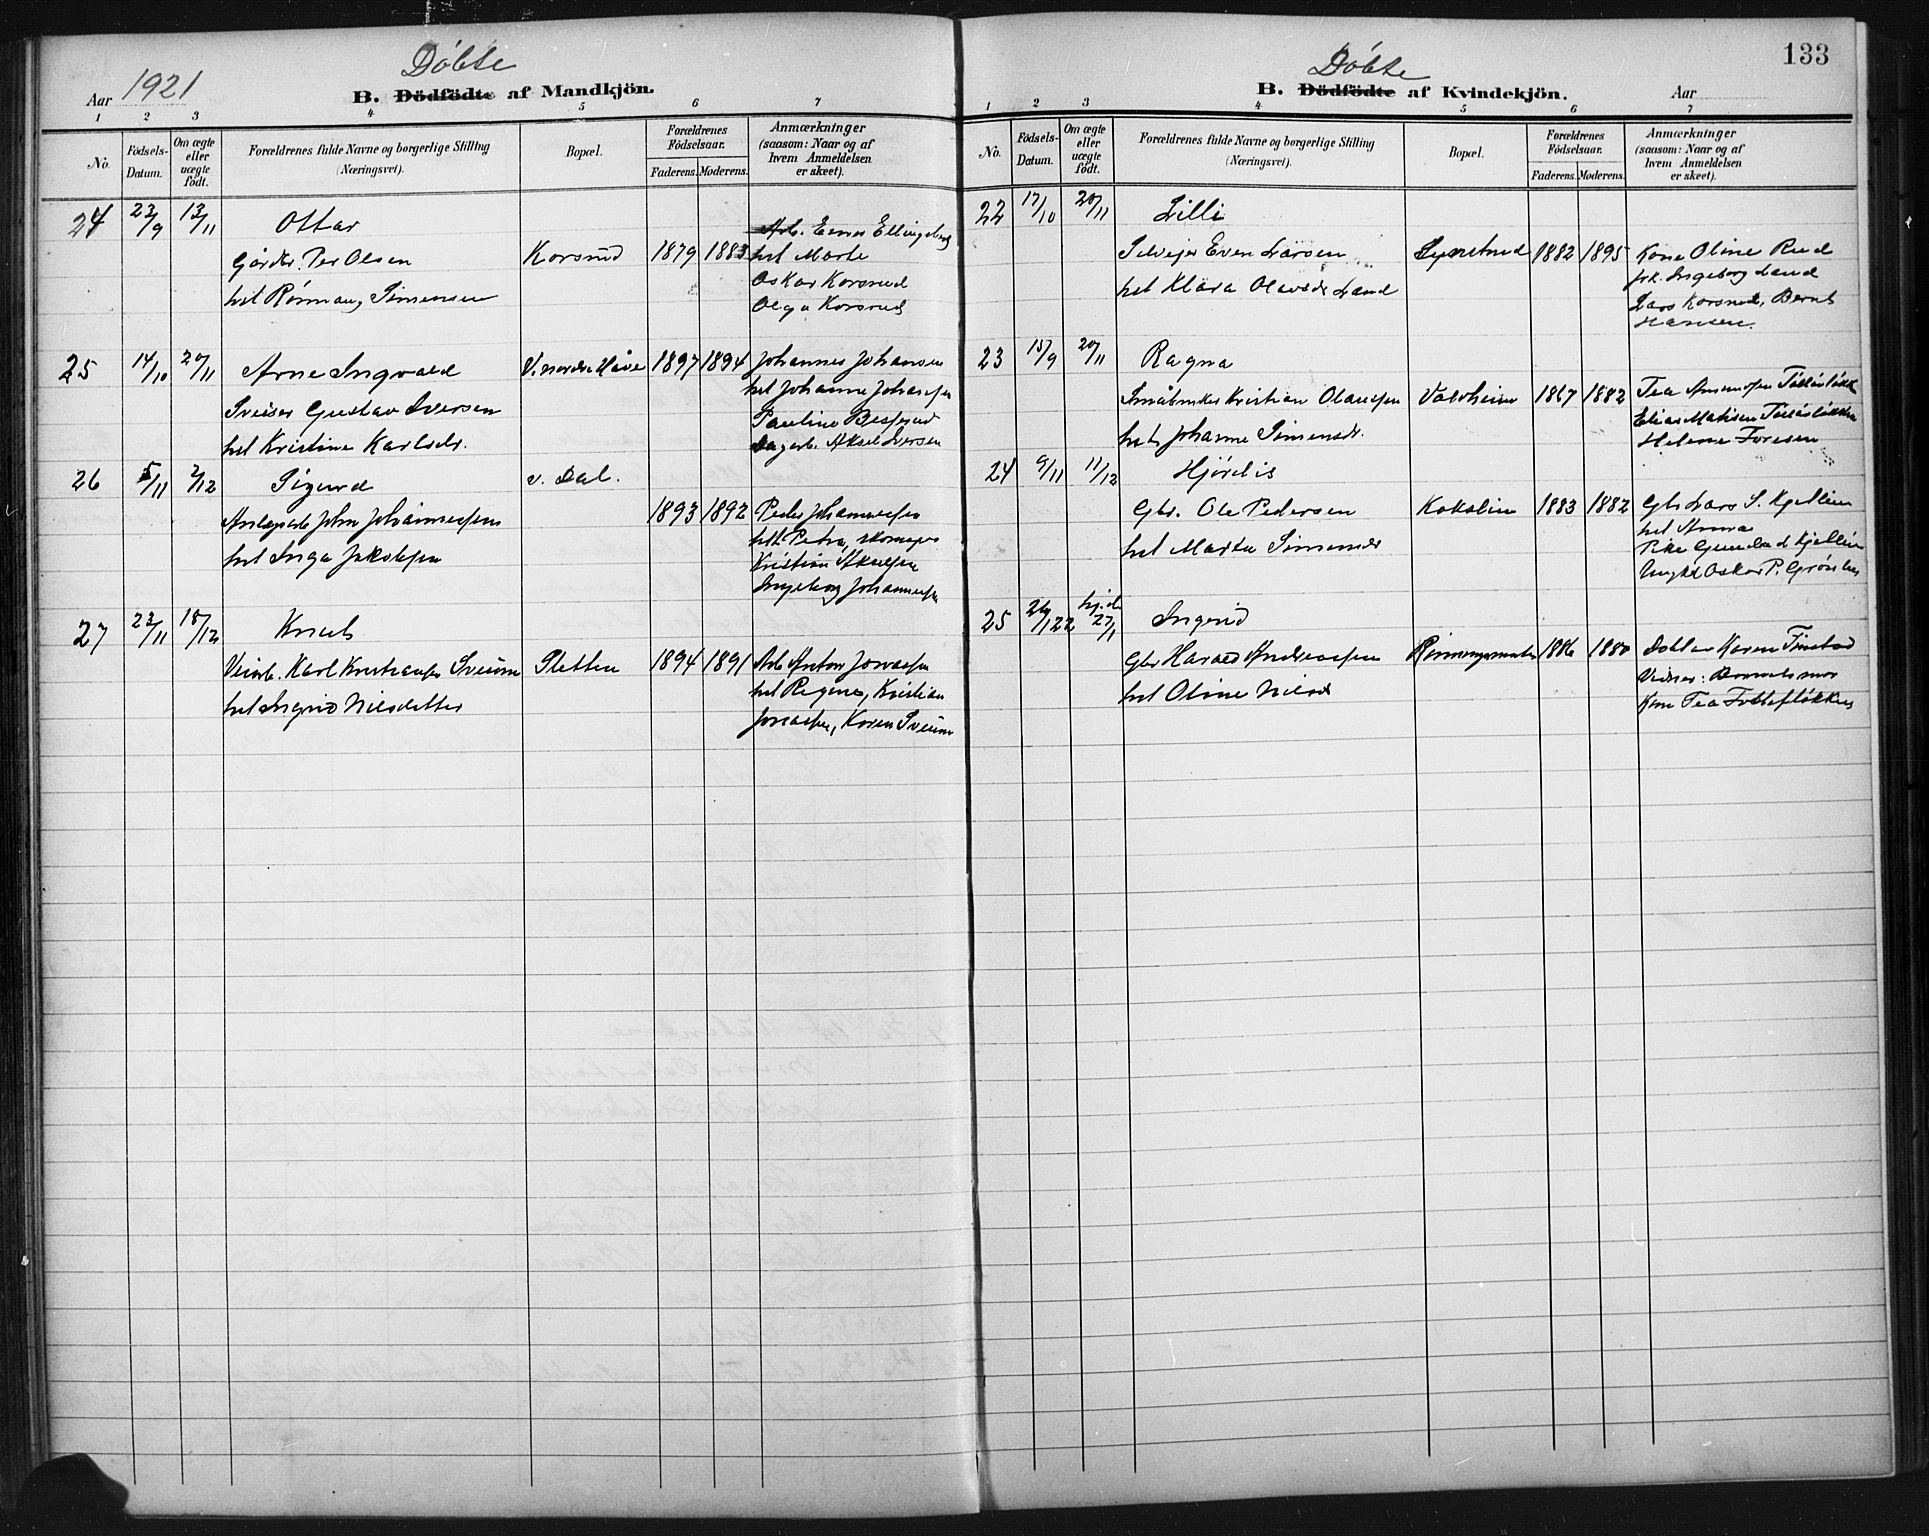 133
Döbte
Aar 1921
B. Dödfödte af Mandkjön.
1 2 3 4 5 6 7
No. Födsels-Datum. Om ægte eller uægte født. Forældrenes fulde Navne og borgerlige Stilling (Næringsvei). Bopæl. Forældrenes Födselsaar. Faderens. Moderens. Anmærkninger (saasom: Naar og af hvem Anmeldelsen er skeet).
24 23/9 13/11 Ottar
Gårdbr. Per Olsen Korsrud 1879 1883
hst Simensen
Arb. Einar Ellingsberg
hst Marte
Oskar Korsrud
Olga Korsrud
25 14/10 20/11 Arne Ingvald V. nordre Håve 1897 1894 Johannes Johansen
Sveiser Gustav Iversen hst Johanne Johansen
hst Kristine Karlsdr. Pauline
Aksel Iversen
26 5/11 2/12 Sigurd v. Dal.
John Johannessen 1893 1892 Peder Johannessen
hst Inga Jakobsen hst Petra,
Kristian
Ingeborg Johannessen
27 23/11 18/12 Knut
Karl Sveum Sletten 1894 1891 Arb Anton Jonassen
hst Ingrid Nilsdatter hst Regine, Kristian
Jonassen, Karen Sveum
Döbte
B. Dödfödte af Kvindekjön.
Aar
1 2 3 4 5 6 7
No. Födsels-Datum. Om ægte eller uægte født. Forældrenes fulde Navne og borgerlige Stilling (Næringsvei). Bopæl. Forældrenes Födselsaar. Faderens. Moderens. Anmærkninger (saasom: Naar og af hvem Anmeldelsen er skeet).
22 17/10 20/11 Lilli
Selveier Even Larsen 1882 1895 Kone Oline Rud
hst Klara Olavsdr Land Ingeborg Land
Lars Korsrud, Bernt
Hansen.
23 15/9 20/11 Ragna
Småbruker Kristian Olaussen Valdheim 1867 1882 Tea Amundsen
hst Johanne Simensdr. Elias Matisen
Helene Foresen
24 9/11 11/12 Hjördis
Gbr. Ole Pedersen Kokslien 1883 1882 Gbr Lars S. Kjellien
hst Marta Simensdr hst Anna
Pike Gunda Kjellien
Ungkl Oskar P.
25 26/12 22 hj.d. 27/1 Ingrid
Gbr Harald Andreassen 1886 1880 Karen Finstad
hst Oline Nilsd Vidner: Barnets mor
Kone Tea